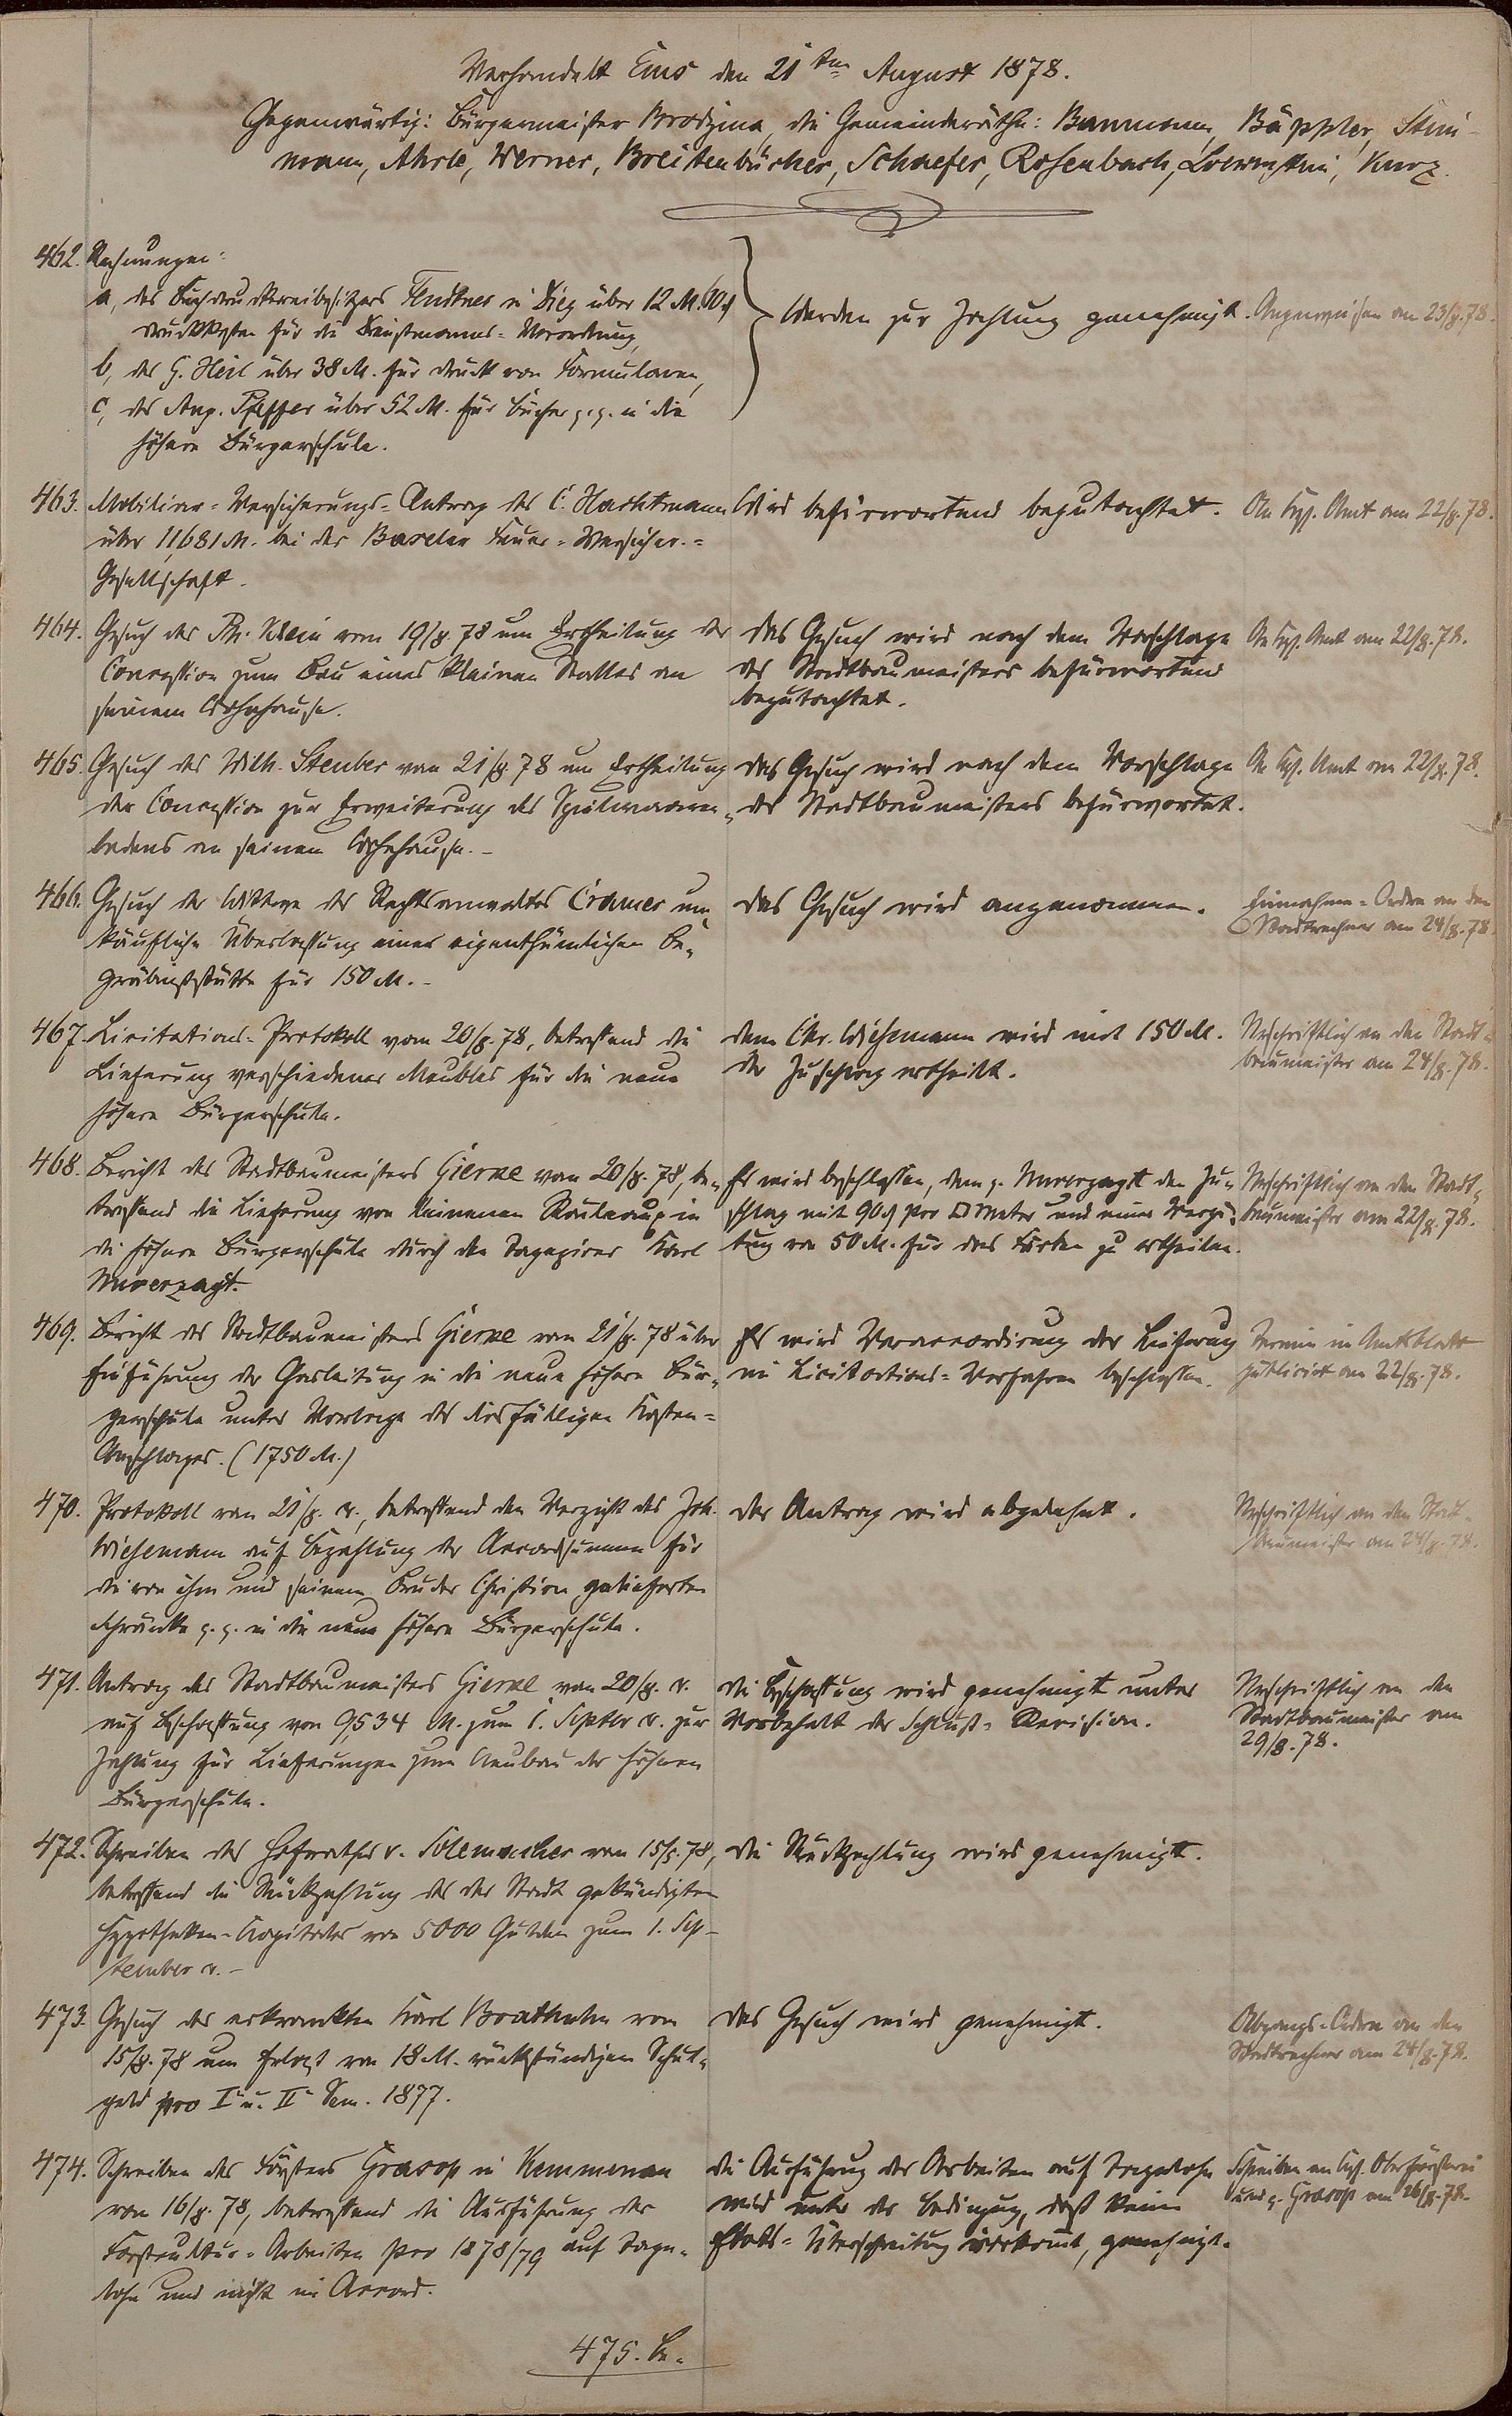 Verhandelt Ems den 21ten August 1878.
Gegenwärtig: Bürgermeister Brodzina, die Gemeinderäthe: Baumann, Bäppler, Stein-
mann, Ahrle, Werner, Breitenbücher, Schaefer, Rosenbach, Loewenstein, Kurz.
462. Rechnungen:
a, des Buchdruckereibesitzers in Diez über 12 M. 60 ₰
Druckkosten für die Dienstmanns-Verordnung,
b, des G. Heil über 38 M. für Druck von Formularen,
c, des Aug. Pfeffer über 52 M. für Bücher p. p. in die
höhere Bürgerschule.
Werden zur Zahlung genehmigt.
Angewiesen am 23/8. 78.
463. Mobiliar-Versicherungs-Antrag des C. Hachtmann
über 11,681 M. bei der Baseler Feuer-Versicher.-
Gesellschaft.
Wird befürwortend begutachtet.
An Kgl. Amt am 22/8. 78.
464. Gesuch des Ph. Klein vom 19/8. 78 um Ertheilung der
Concession zum Bau eines kleinen Stalles an
seinem Wohnhause.
Das Gesuch wird nach dem Vorschlage
des Stadtbaumeisters befürwortend
begutachtet.
An Kgl. Amt am 22/8. 78.
465. Gesuch des Wilh. Steuber vom 21/8 78 um Ertheilung
der Concession zur Erweiterung des Spielwaaren-
ladens an seinem Wohnhause.-
Das Gesuch wird nach dem Vorschlage
des Stadtbaumeisters befürwortet.
An Kgl. Amt am 22/8. 78.
466. Gesuch der Wittwe des Rechtsanwaltes Cramer um
käufliche Überlassung einer eigenthümlichen Be-
gräbnißstätte für 150 M.-
Das Gesuch wird angenommen.
Einnahme-Ordre an den
Stadtrechner am 24/8. 78.
467. Licitations-Protokoll vom 20/8. 78, betreffend die
Lieferung verschiedener Meubles für die neue
höhere Bürgerschule.
Dem Chr. Wiesemann wird mit 150 M.
der Zuschlag ertheilt.
Urschriftlich an den Stadt-
baumeister am 24/8. 78.
468. Bericht des Stadtbaumeisters Gierke vom 20/8. 78, be-
treffend die Lieferung von leinenen Rouleaux in
die höhere Bürgerschule durch den Tapezirer Karl
Unverzagt.
Es wird beschlossen, dem p. Unverzagt den Zu-
schlag mit 90 ₰ pro □ Meter und einer Vergü-
tung von 50 M. für das Färben zu ertheilen.
Urschriftlich an den Stadt-
baumeister am 22/8. 78.
469. Bericht des Stadtbaumeisters Gierke vom 21/8. 78 über
Einführung der Gasleitung in die neue höhere Bür-
gerschule unter Vorlage des diesfälligen Kosten-
Anschlages. (1750 M.)
Es wird Veraccordirung der Lieferung
im Licitations-Verfahren beschlossen.
Termin im Amtsblatt
publicirt am 22/8. 78.
470. Protokoll vom 21/8. cr., betreffend den Verzicht des Joh.
Wiesemann auf Bezahlung der Accordsumme für
die von ihm und seinem Bruder Christian gelieferten
Schränke p. p. in die neue höhere Bürgerschule.
Der Antrag wird abgelehnt.
Urschriftlich an den Stadt-
baumeister am 24/8. 78.
471. Antrag des Stadtbaumeisters Gierke vom 20/8. cr.
auf Beschaffung von 9,534 M. zum 1. Septbr cr. zur
Zahlung für Lieferungen zum Neubau der höheren
Bürgerschule.
Die Beschaffung wird genehmigt unter
Vorbehalt der Schluß-Revision.
Urschriftlich an den
Stadtbaumeister am
29/8. 78.
472. Schreiben des Hofrathes v. Solemacher vom 15/8. 78,
betreffend die Rückzahlung des der Stadt gekündigten
Hypotheken-Kapitales von 5000 Gulden zum 1. Sep-
tember cr.-
Die Rückzahlung wird genehmigt.
473. Gesuch des erkrankten Karl vom
15/8. 78 um Erlaß von 18 M. rückständigem Schul-
geld pro I. u. II. Sem. 1877.
Das Gesuch wird genehmigt.
Abgangs-Ordre an den
Stadtrechner am 24/8. 78.
474. Schreiben des Försters Grasop in Kemmenau
vom 16/8. 78, betreffend die Ausführung der
Forstkultur-Arbeiten pro 1878/79 auf Tage-
lohn und nicht in Accord.
Die Ausführung der Arbeiten auf Tagelohn
wird unter der Bedingung, daß keine
Etats-Überschreitung vorkomt, genehmigt.
Schreiben an Kgl. Oberförsterei
und p. Grasop am 26/8. 78.
475. Be-